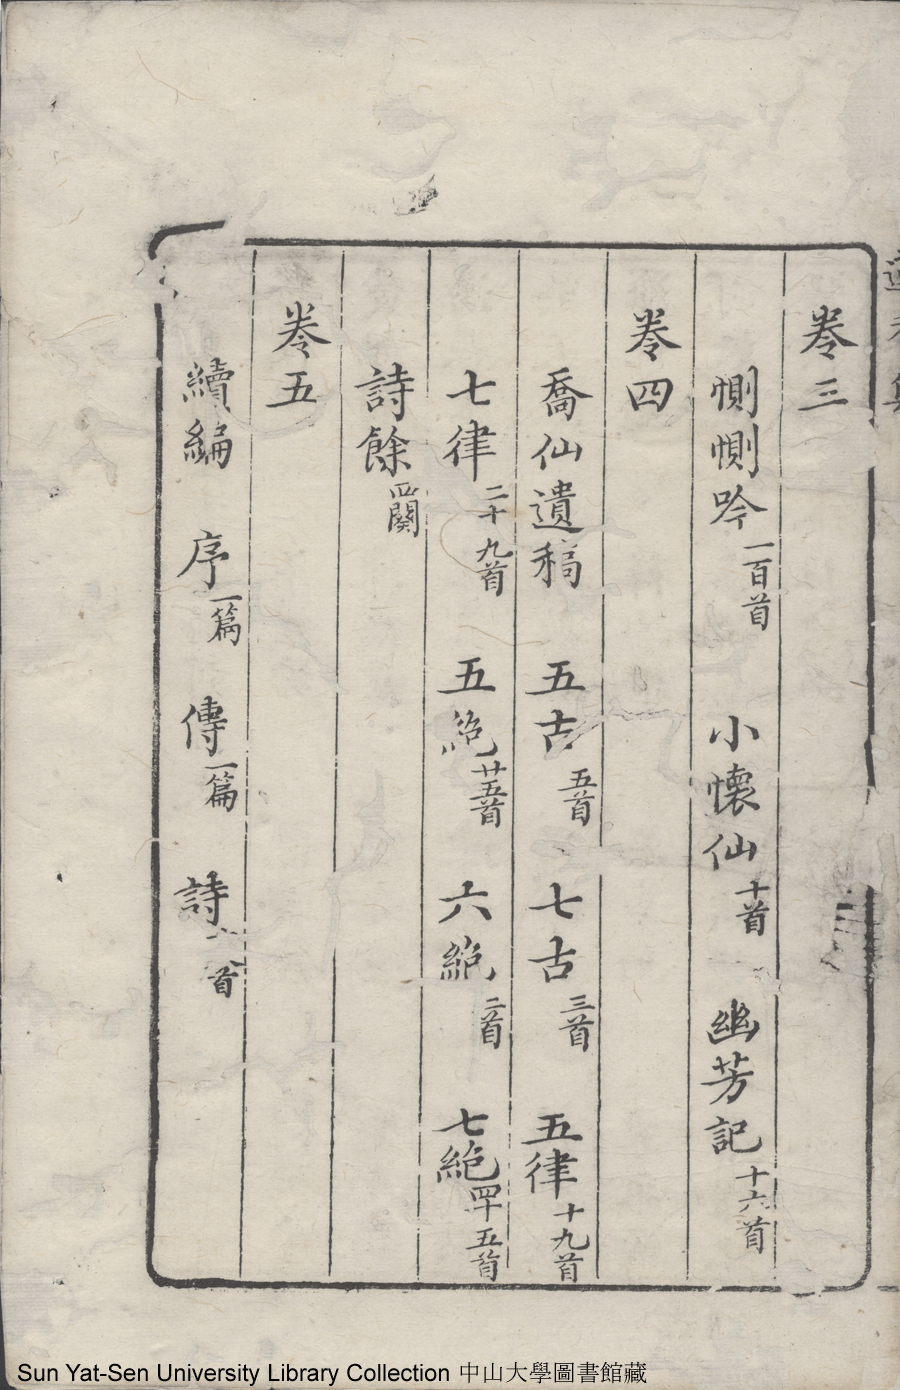 卷三
惻惻吟一百首 小懷仙十首 幽芳記十六首
卷四
喬仙遺稿 五古五首 七古三首 五律十九首
七律二十九首 五絕廿五首 六絕二首 七絕四十五首
詩餘四闋
卷五
續編 序一篇 傳一篇 詩首
Sun Yat-Sen University Library Collection 中山大學圖書館藏